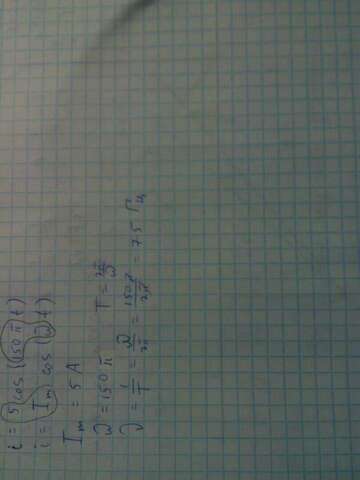 i = 5 cos (150 π t)
i = I_m cos (ω t)
I_m = 5 A
ω = 150 π    T = 2π/ω
ν = 1/T = ω/2π = 150π/2π = 75 Гц